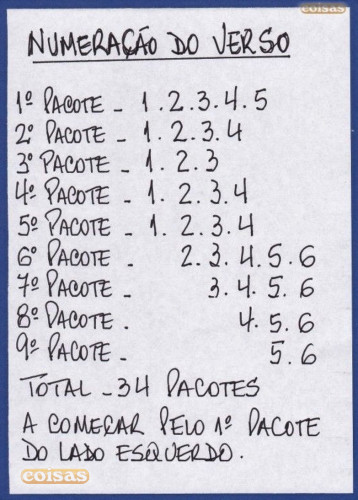 coisas
NUMERAÇÃO DO VERSO
1º PACOTE - 1.2.3.4.5
2º PACOTE - 1.2.3.4
3º PACOTE - 1.2.3
4º PACOTE - 1.2.3.4
5º PACOTE - 1.2.3.4
6º PACOTE - 2.3.4.5.6
7º PACOTE - 3.4.5.6
8º PACOTE . 4.5.6
9º PACOTE - 5.6
TOTAL - 34 PACOTES
A COMEÇAR PELO 1º PACOTE
DO LADO ESQUERDO.
coisas